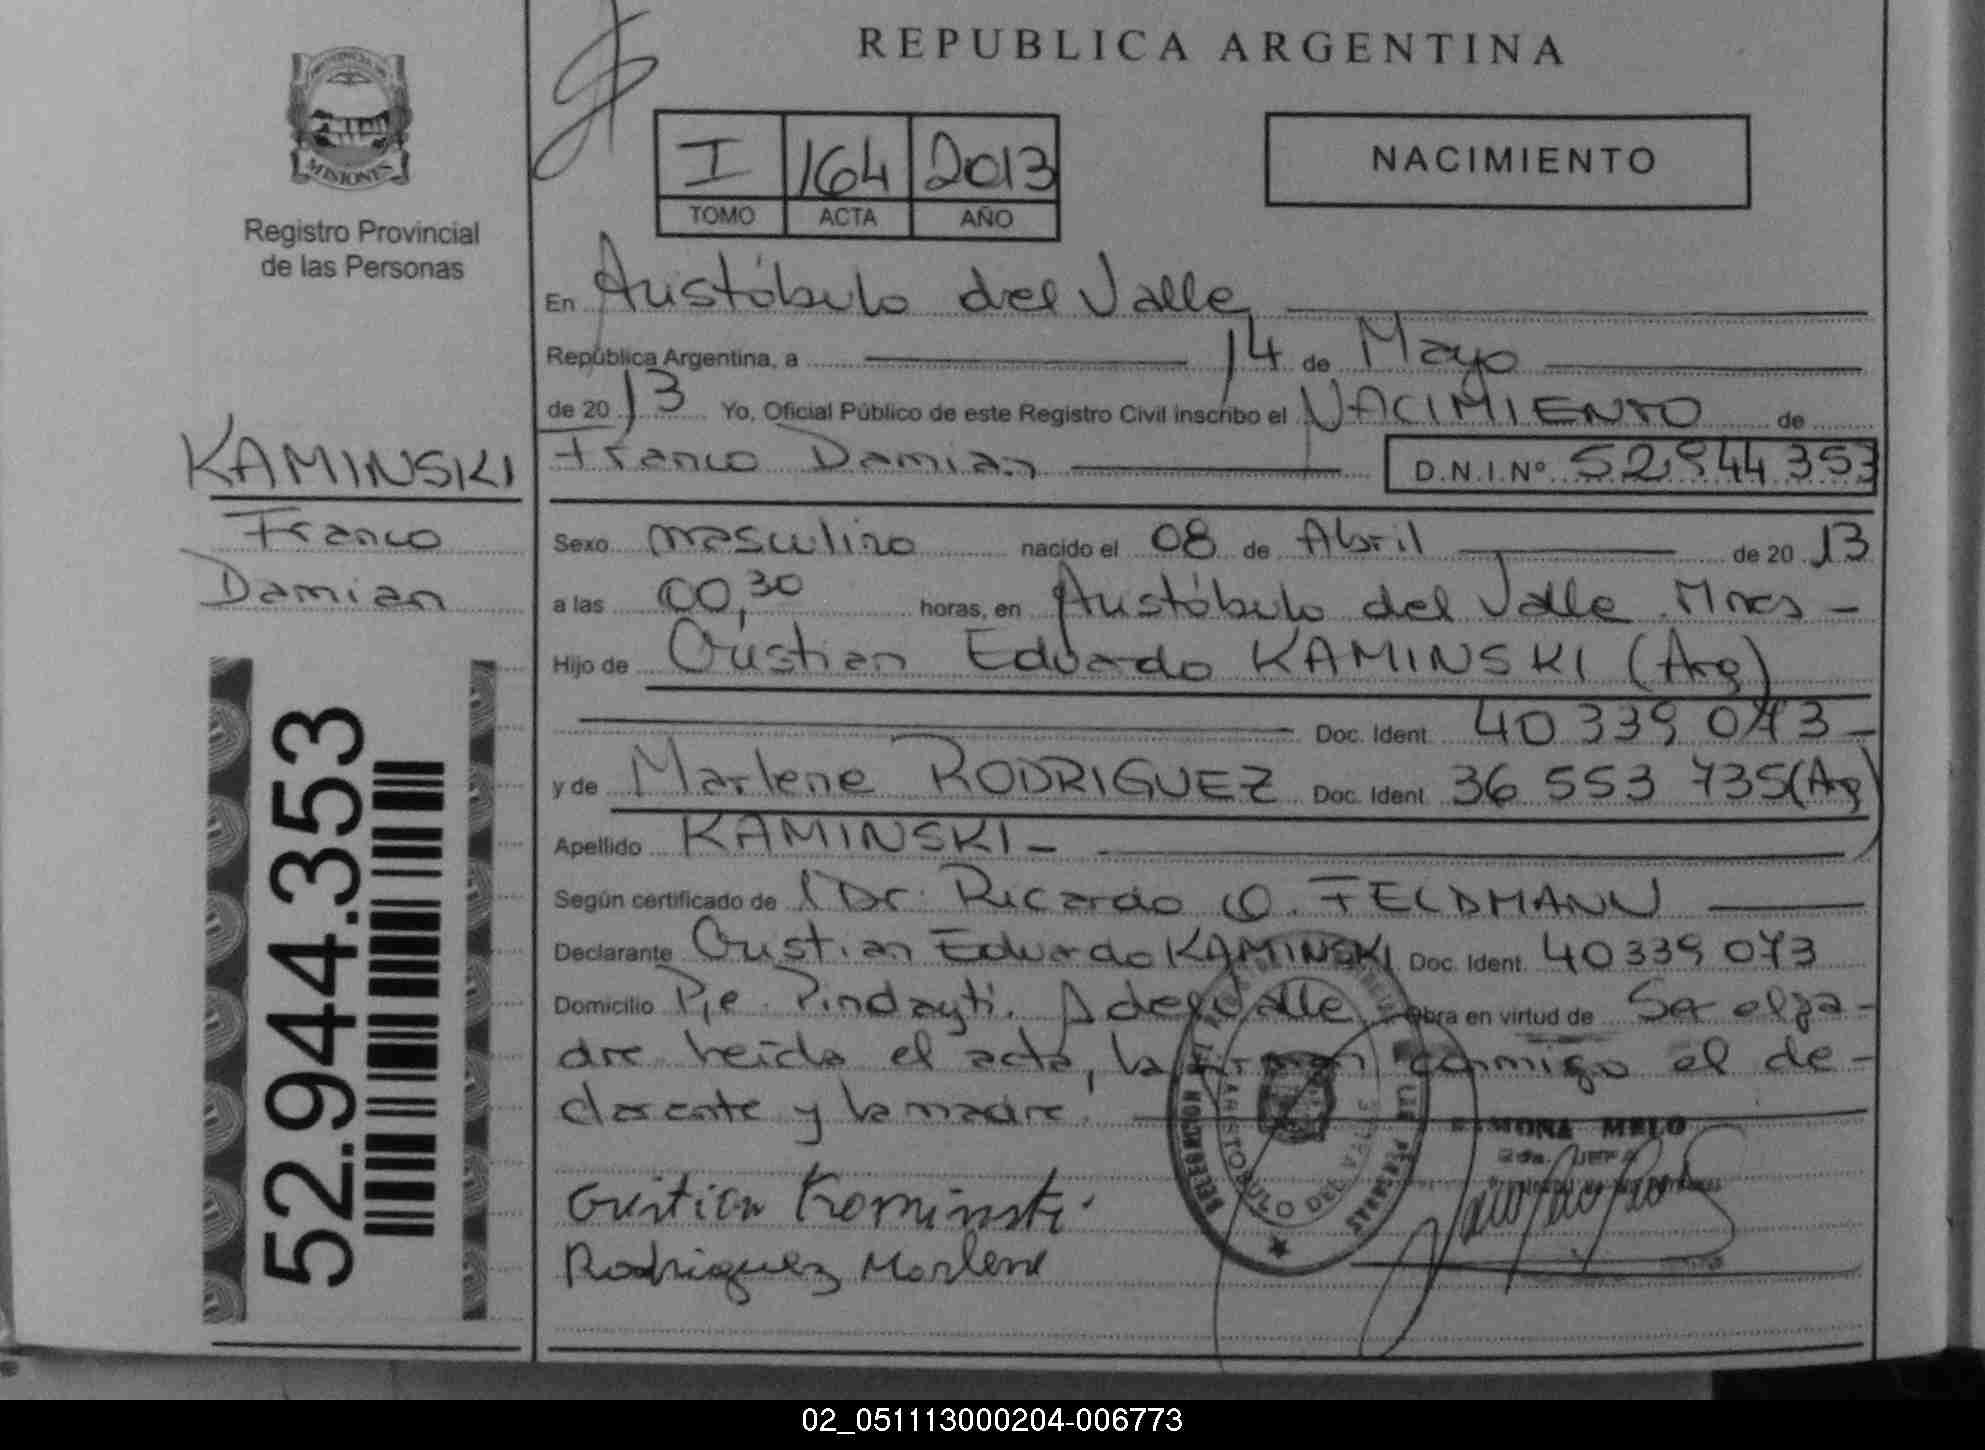 REPUBLICA ARGENTINA
PROVINCIA DE
MISIONES
Registro Provincial
de las Personas
I 164 2013
TOMO ACTA AÑO
NACIMIENTO
En Aristóbulo del Valle
República Argentina, a 14 de Mayo
de 2013 Yo, Oficial Público de este Registro Civil inscribo el NACIMIENTO de
Franco Damian D.N.I.Nº 52.944 353
KAMINSKI
Franco
Damian
52.944.353
Sexo masculino nacido el 08 de Abril de 2013
a las 00,30 horas, en Aristóbulo del Valle Mnes -
Hijo de Cristian Eduardo KAMINSKI (Arg)
Doc. Ident. 40 339 073 -
y de Marlene RODRIGUEZ Doc. Ident. 36 553 735 (Arg)
Apellido KAMINSKI -
Según certificado de Dr. Ricardo O. FELDMANN
Declarante Cristian Eduardo KAMINSKI Doc. Ident. 40 339 073
Domicilio Pje. Pindayti. A del Valle Obra en virtud de Ser el pa-
dre leída el acta, la firman conmigo el de-
clarante y la madre.
RAMONA MELO
JEFA
DELEGACION
PERSONAS
ARISTOBULO DEL VALLE
Cristian Kaminski
Rodriguez Marlene
02_051113000204-006773